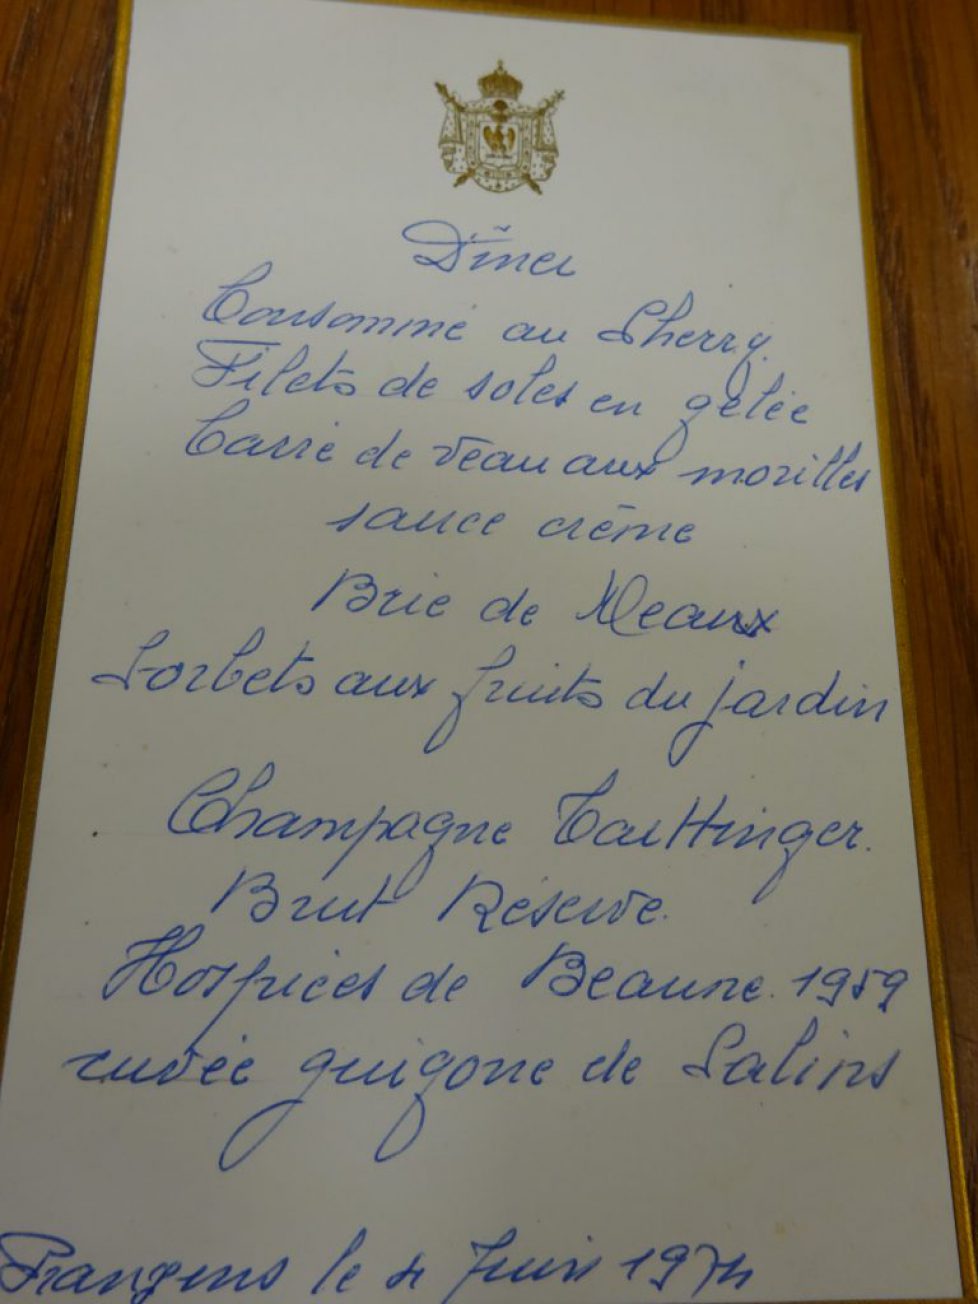 Dîner
Consommé au Sherry.
Filets de soles en gelée
Carré de veau aux morilles
sauce crème
Brie de Meaux
Sorbets aux fruits du jardin
Champagne Taittinger.
Brut Réserve.
Hospices de Beaune. 1959
cuvée guigone de Salins
Prangins le 4 Juin 1974